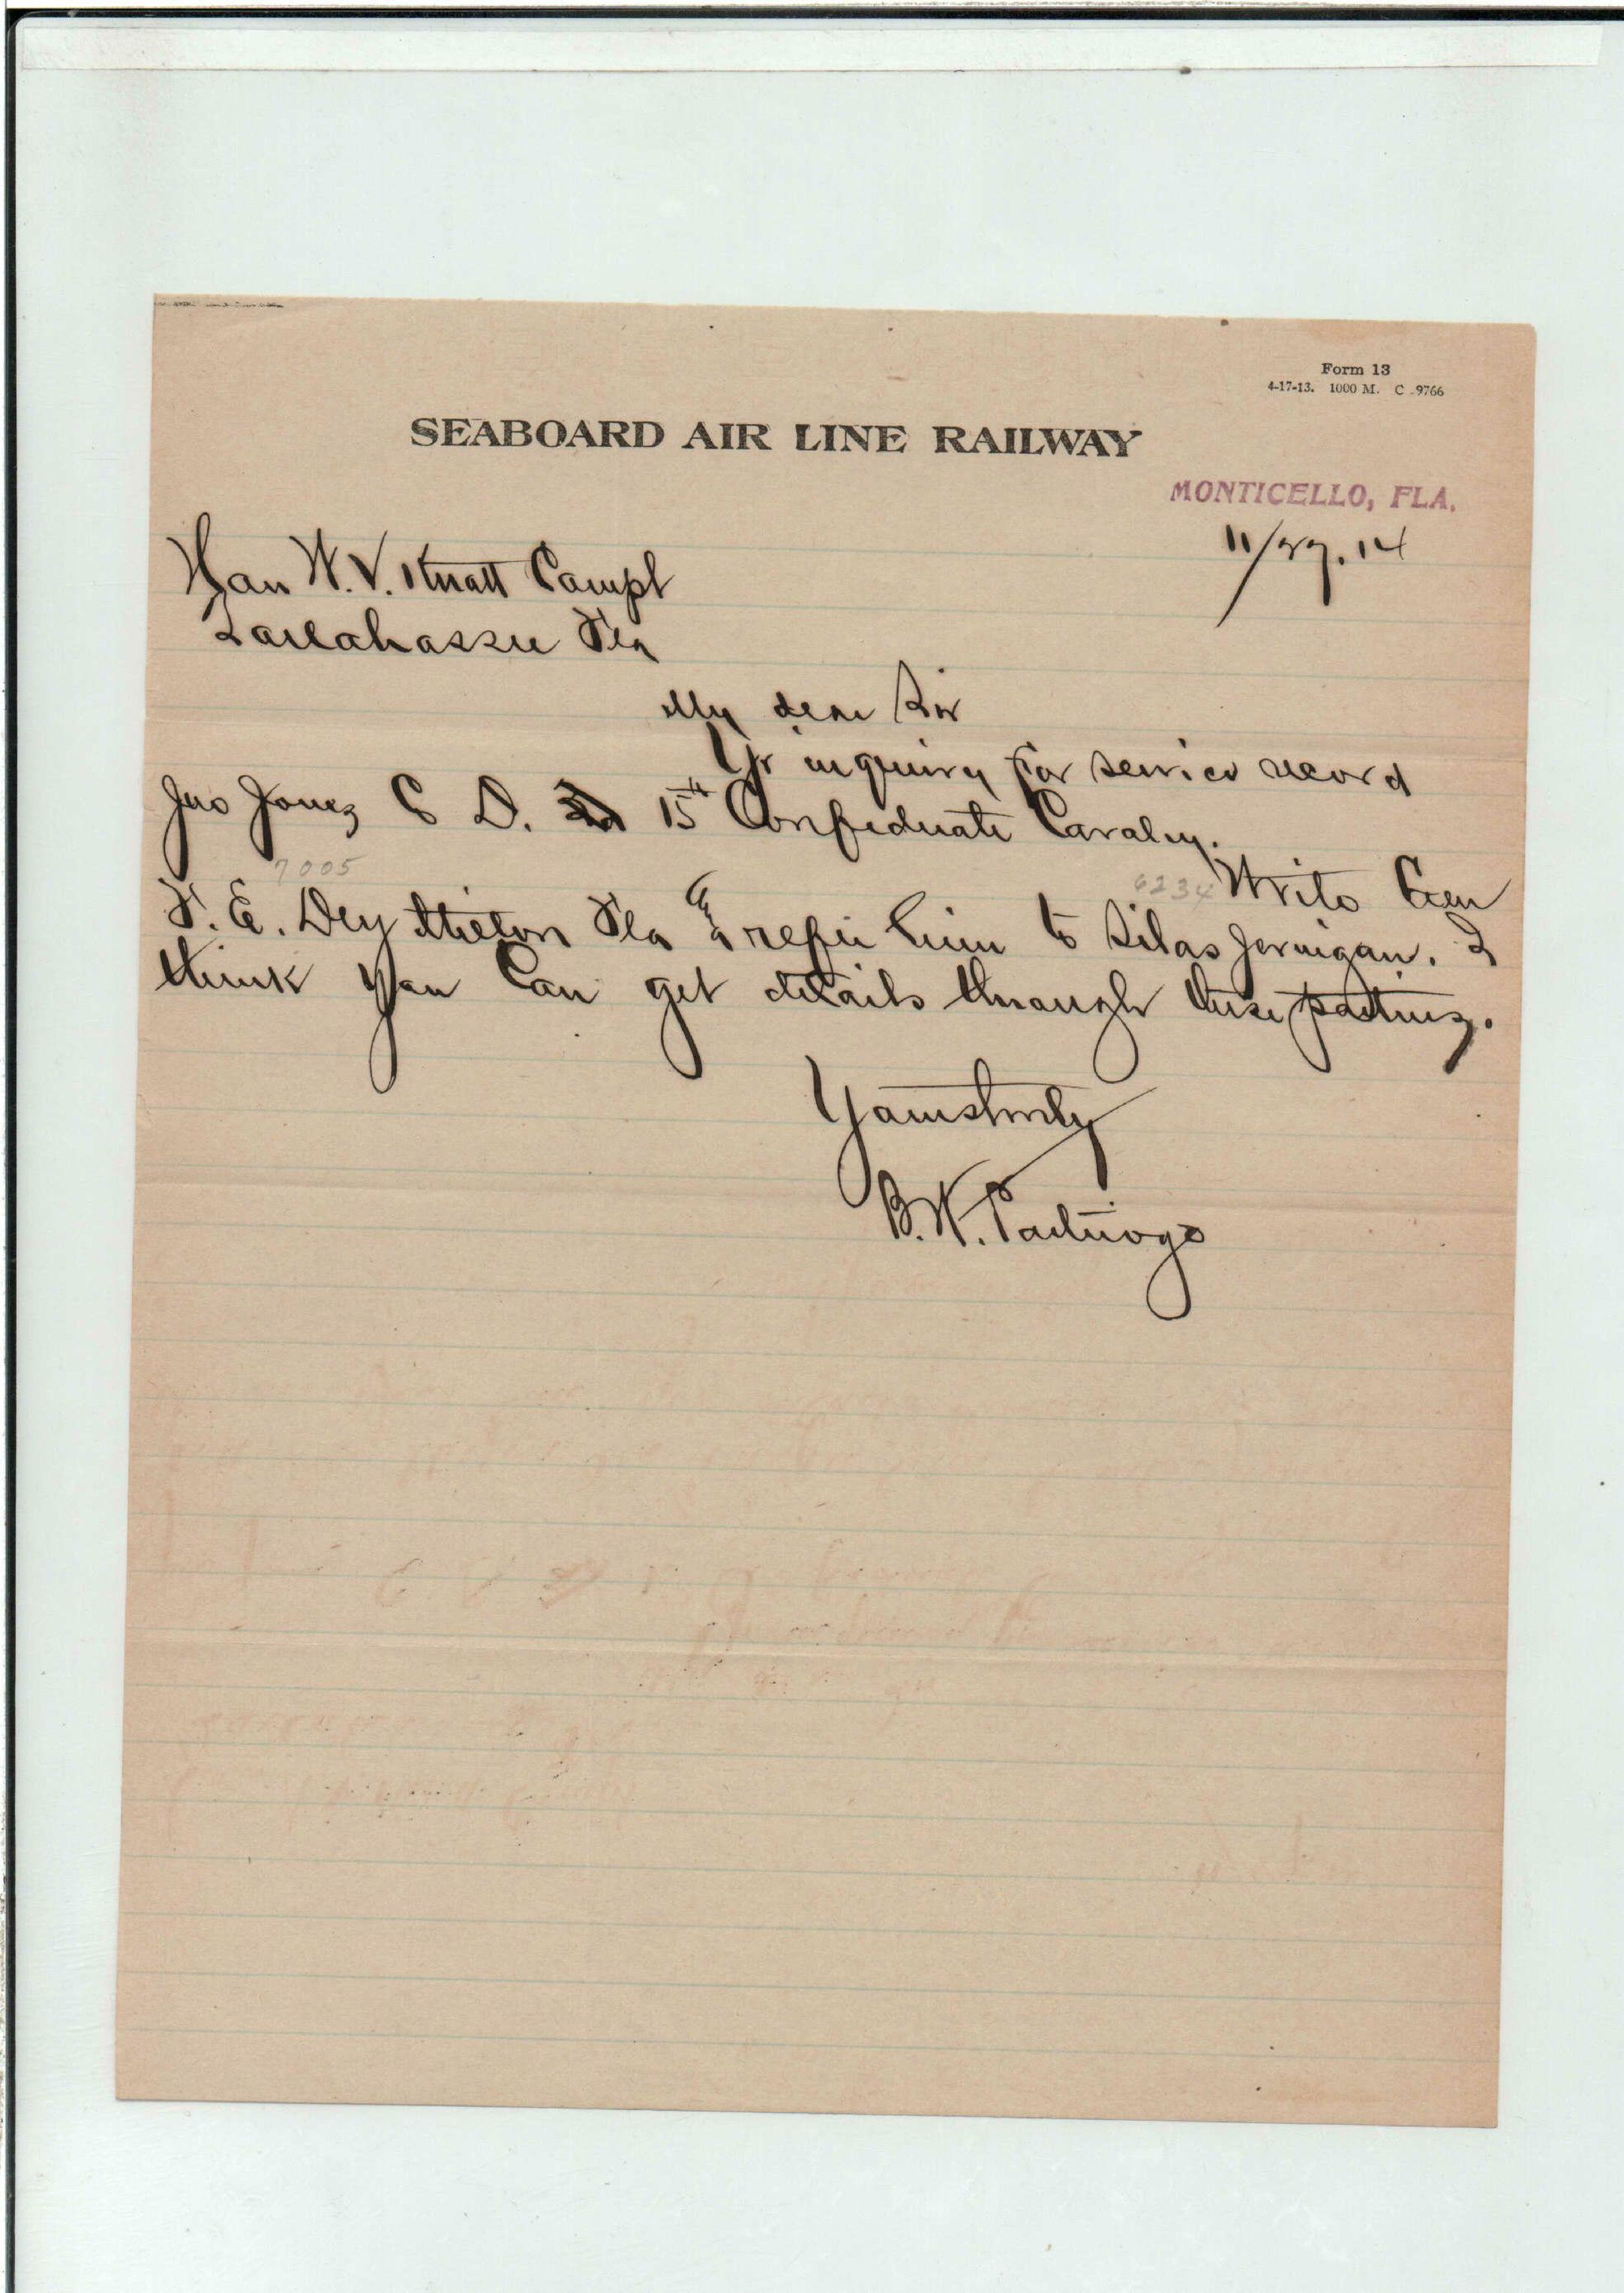 Form 13
4-17-13. 1000 M. C 9766
SEABOARD AIR LINE RAILWAY
MONTICELLO, FLA.
11/27.14
Hon W.V. Knott Compt
Tallahassee Fla
My dear Sir
Yr inquiry for service record
Jno Jones Co D. 15th Confederate Cavalry.
7005
6234
Write Gen
F. E. Dey Milton Fla & refer him to Silas Jernigan. I
think you can get details through these parties.
Yours truly
B.W. Partridge